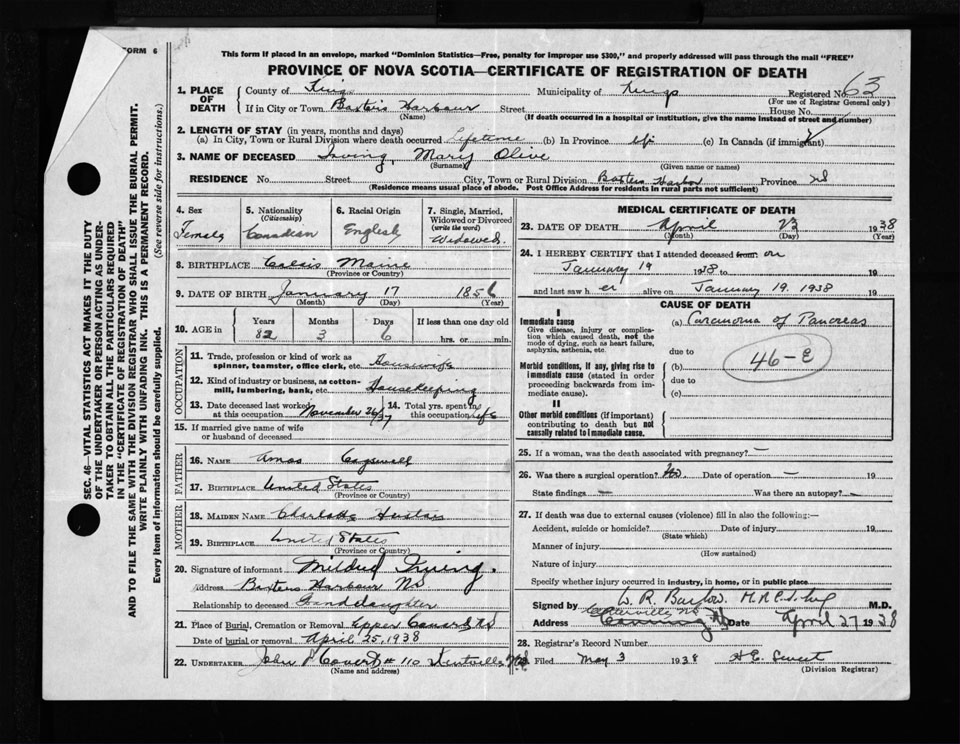 FORM 6
This form if placed in an envelope, marked "Dominion Statistics—Free, penalty for improper use $300," and properly addressed will pass through the mail "FREE"
PROVINCE OF NOVA SCOTIA—CERTIFICATE OF REGISTRATION OF DEATH
1. PLACE OF DEATH
County of Kings Municipality of Kings Registered No. 63
(For use of Registrar General only)
If in City or Town Baxters Harbour Street House No.
(Name) (If death occurred in a hospital or institution, give the name instead of street and number)
2. LENGTH OF STAY (in years, months and days)
(a) In City, Town or Rural Division where death occurred Lifetime (b) In Province (c) In Canada (if immigrant)
3. NAME OF DECEASED Irving, Mary Olive
(Surname) (Given name or names)
RESIDENCE No. Street City, Town or Rural Division Baxters Harbor Province NS
(Residence means usual place of abode. Post Office Address for residents in rural parts not sufficient)
4. Sex Female
5. Nationality (Citizenship) Canadian
6. Racial Origin English
7. Single, Married, Widowed or Divorced (write the word) Widowed
8. BIRTHPLACE Calais Maine
(Province or Country)
9. DATE OF BIRTH January 17 1856
(Month) (Day) (Year)
10. AGE in Years Months Days If less than one day old
82 3 6 hrs. or min.
OCCUPATION
11. Trade, profession or kind of work as spinner, teamster, office clerk, etc. Housewife
12. Kind of industry or business, as cotton-mill, lumbering, bank, etc. Housekeeping
13. Date deceased last worked at this occupation November 26/37
14. Total yrs. spent in this occupation life
15. If married give name of wife or husband of deceased
FATHER
16. NAME Amos
17. BIRTHPLACE United States
(Province or Country)
MOTHER
18. MAIDEN NAME Charlotte
19. BIRTHPLACE United States
(Province or Country)
20. Signature of informant Mildred Irving.
Address Baxters Harbour NS
Relationship to deceased Granddaughter
21. Place of Burial, Cremation or Removal Upper Canard NS
Date of burial or removal April 25, 1938
22. UNDERTAKER John # 110 Kentville NS
(Name and address)
MEDICAL CERTIFICATE OF DEATH
23. DATE OF DEATH April 23 1938
(Month) (Day) (Year)
24. I HEREBY CERTIFY that I attended deceased from on
January 19 1938 to 19
and last saw her alive on January 19. 1938 19
CAUSE OF DEATH
I
Immediate cause
Give disease, injury or complication which caused death, not the mode of dying, such as heart failure, asphyxia, asthenia, etc.
(a) Carcinoma of Pancreas
due to
Morbid conditions, if any, giving rise to immediate cause (stated in order proceeding backwards from immediate cause).
(b)
46-E
due to
(c)
II
Other morbid conditions (if important) contributing to death but not causally related to immediate cause.
25. If a woman, was the death associated with pregnancy? —
26. Was there a surgical operation? No Date of operation — 19
State findings — Was there an autopsy? —
27. If death was due to external causes (violence) fill in also the following:—
Accident, suicide or homicide? Date of injury 19
(State which)
Manner of injury
(How sustained)
Nature of injury
Specify whether injury occurred in industry, in home, or in public place
Signed by W. R. Barlow. M.D.
Address Canning NS Date April 27 1938
28. Registrar's Record Number
Filed May 3 1938 H E. Sweet
(Division Registrar)
SEC. 46—VITAL STATISTICS ACT MAKES IT THE DUTY
OF THE UNDERTAKER OR PERSON ACTING AS UNDER-
TAKER TO OBTAIN ALL THE PARTICULARS REQUIRED
IN THE "CERTIFICATE OF REGISTRATION OF DEATH"
AND TO FILE THE SAME WITH THE DIVISION REGISTRAR WHO SHALL ISSUE THE BURIAL PERMIT.
WRITE PLAINLY WITH UNFADING INK. THIS IS A PERMANENT RECORD.
Every item of information should be carefully supplied. (See reverse side for instructions.)